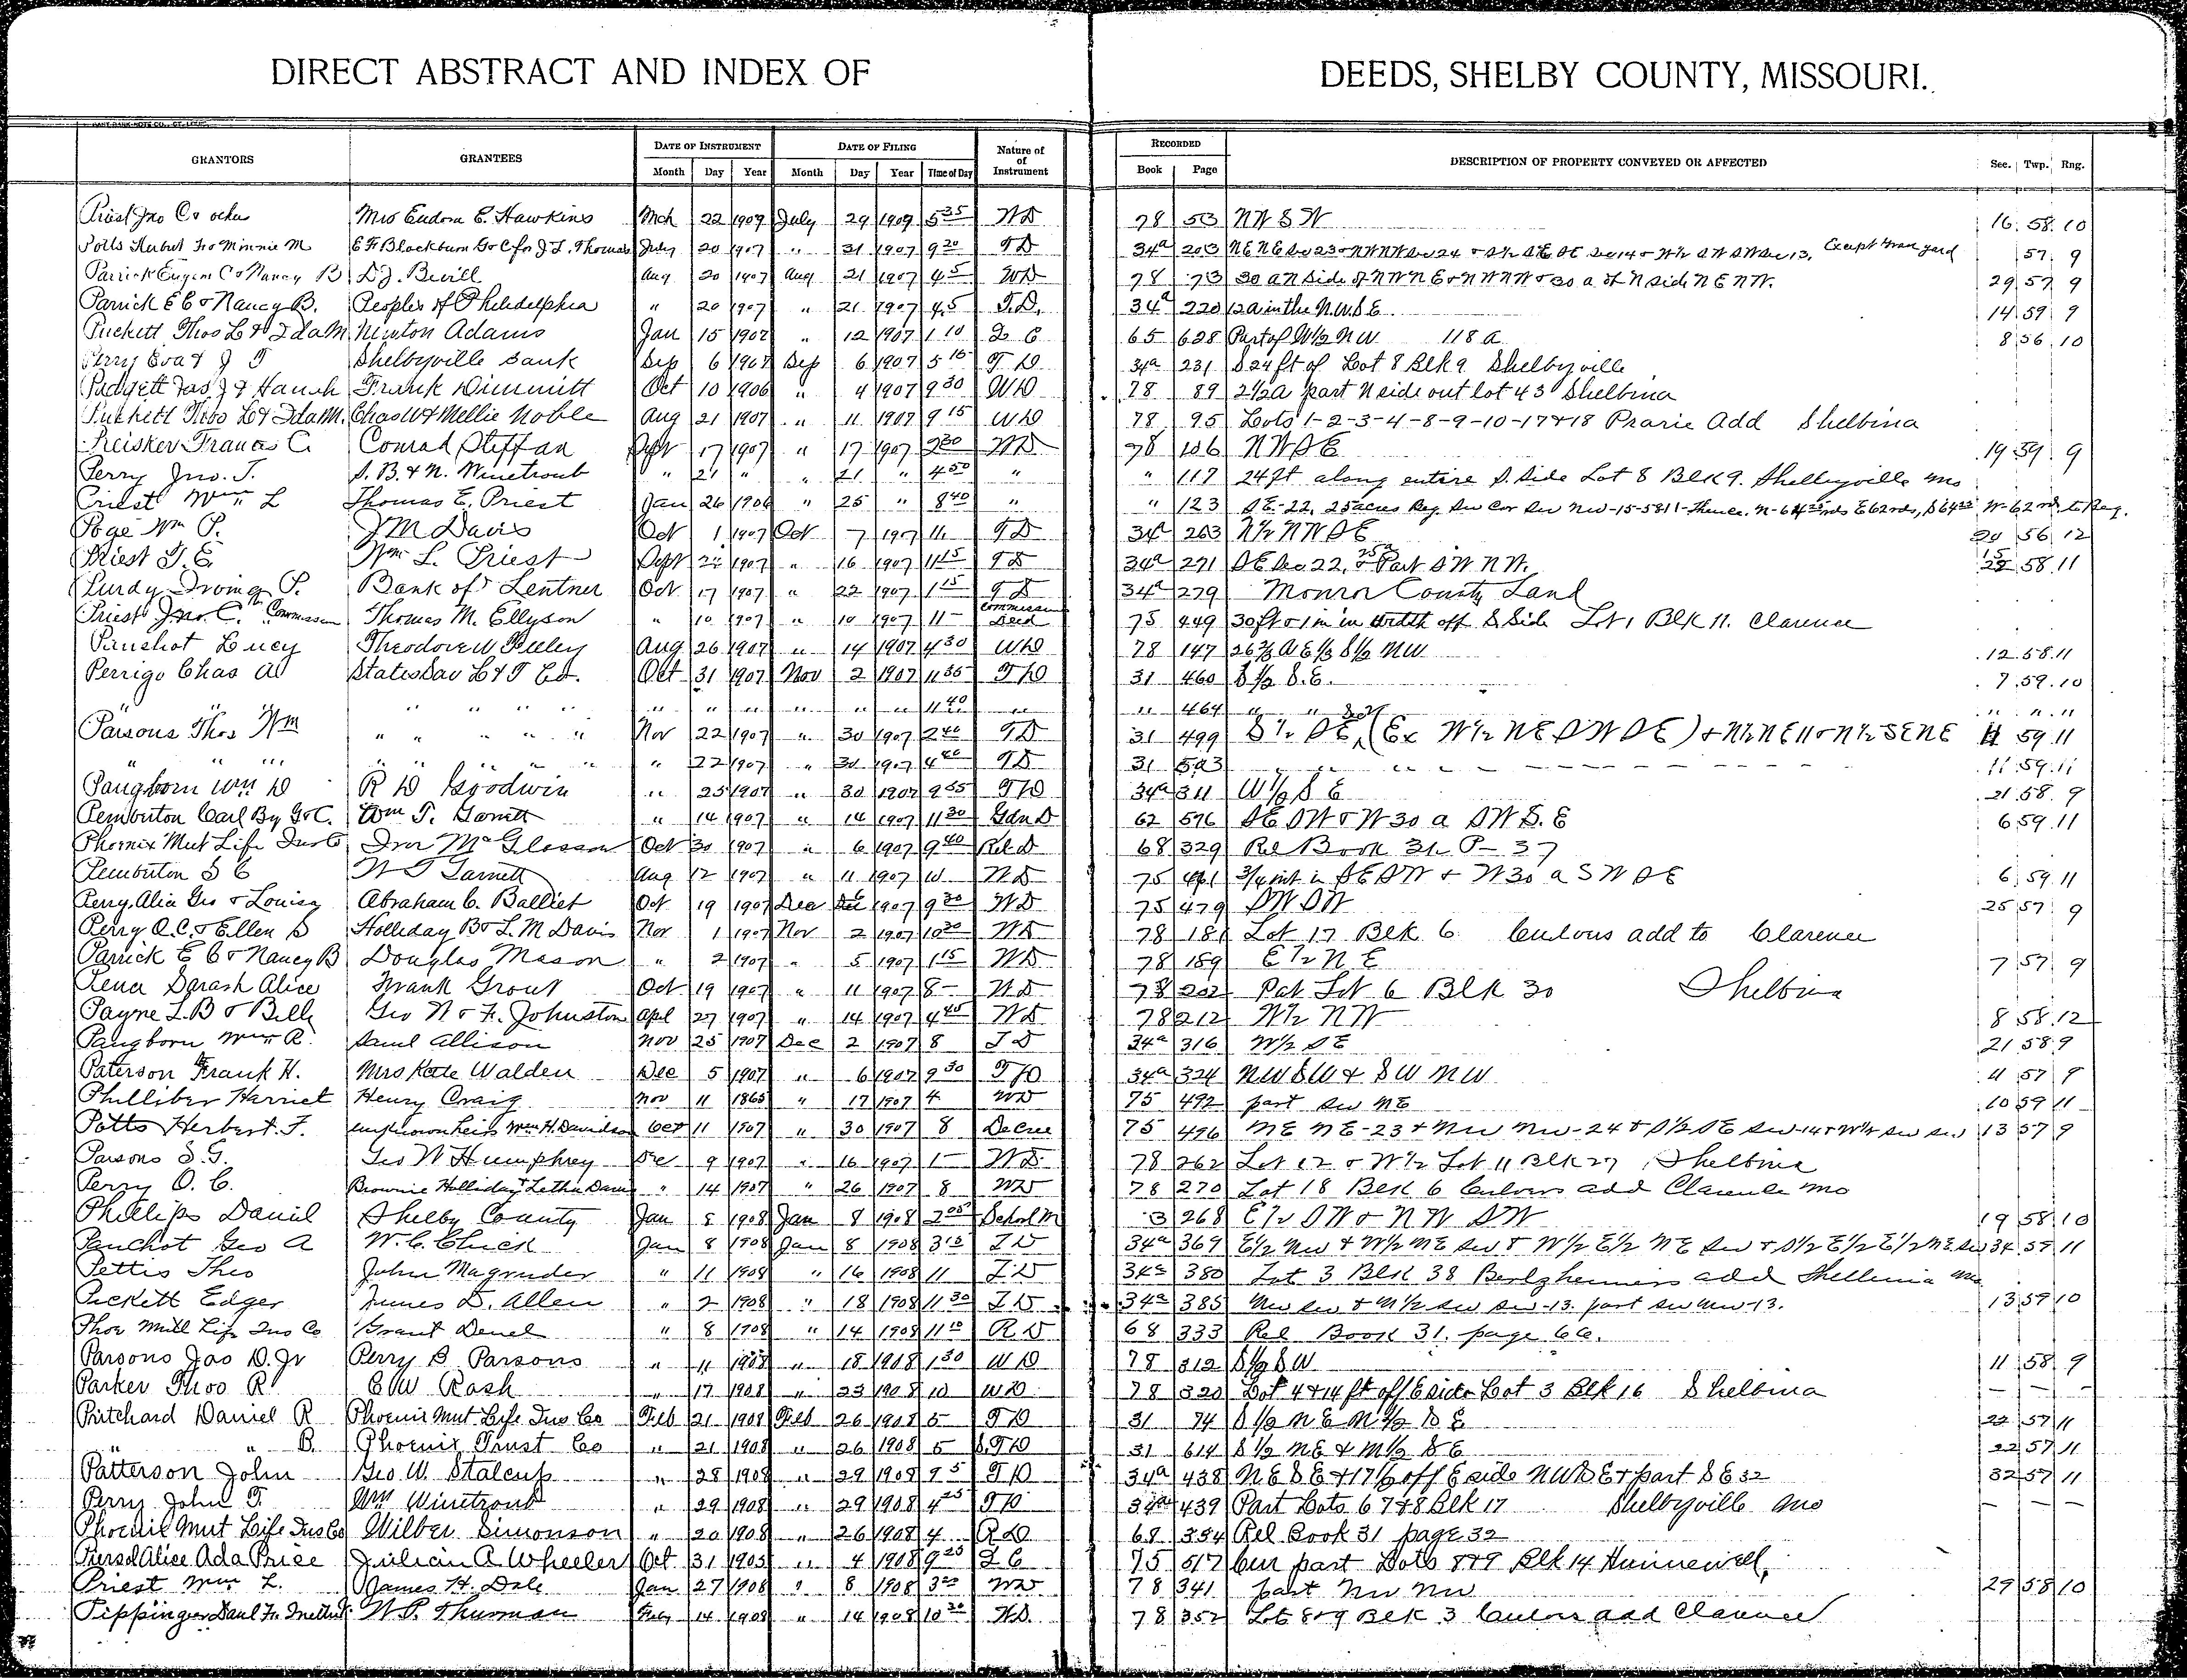 DIRECT ABSTRACT AND INDEX OF DEEDS, SHELBY COUNTY, MISSOURI.
GRANTORS GRANTEES DATE OF INSTRUMENT DATE OF FILING Nature of Instrument RECORDED DESCRIPTION OF PROPERTY CONVEYED OR AFFECTED Sec. Twp. Rng.
Month Day Year Month Day Year Time of Day Book Page
Priest Jno C & other Mrs Eudora E. Hawkins Mch 22 1909 July 29 1909 5 35 WD 78 53 NW SW 16 58 10
Potts Herbert F & Minnie M E F Blackburn for J T. Thomas July 20 1907 " 31 1907 9 20 TD 34a 203 Except Grave yard 57 9
Parrick Eugene C & Nancy B D. J. Bevill Aug 20 1907 Aug 21 1907 4 5 WD 78 73 30 a N Side of NW NE & NW NW & 30 a of N side NE NW. 29 57 9
Parrick E C & Nancy B. Peoples of Philadelphia " 20 1907 " 21 1907 4 5 T.D. 34a 220 12a in the NW SE 14 59 9
Puckett Thos L & Ida M Newton Adams Jan 15 1902 " 12 1907 1 10 Q C 65 628 Part of W½ NW 118 a 8 56 10
Perry Eva & J T Shelbyville Bank Sep 6 1907 Sep 6 1907 5 15 TD 34a 231 S 24 ft of Lot 8 Blk 9 Shelbyville
Padgett Jas J & Hanah Frank Dimmitt Oct 10 1906 " 4 1907 9 30 WD 78 89 2½a part N side out lot 43 Shelbina
Puckett Thos L & Ida M. Chas W & Mellie Noble Aug 21 1907 " 11 1907 9 15 WD 78 95 Lots 1-2-3-4-8-9-10-17&18 Prarie Add Shelbina
Preisker Frances C. Conrad Steffan Sept 17 1907 " 17 1907 2 30 WD 78 106 NW SE 19 59 9
Perry Jno. T. S. B. & N. Winetroub " 21 " " 21 " 4 50 " " 117 24 ft along entire S. Side Lot 8 Blk 9. Shelbyville Mo
Priest Wm L Thomas E. Priest Jan 26 1906 " 25 " 8 40 " " 123 SE-22, 25 acres Beg. Sw Cor Sw NW-15-58 11-Thence. N-64 rds E 62 rds, S 64 W-62 rd. to Beg.
Poge Wm P. J M Davis Oct 1 1907 Oct 7 1907 11 TD 34a 263 N½ NW SE 24 56 12
Priest T. E. Wm L. Priest Sept 24 1907 " 16 1907 11 15 TD 34a 271 SE Sec 22, & 25a Part SW NW. 15 22 58 11
Purdy Irving P. Bank of Lentner Oct 17 1907 " 22 1907 1 15 TD 34a 279 Monroe County Land
Priest Jno. C. Commissioner Thomas M. Ellyson " 10 1907 " 10 1907 11 - Commissioner Deed 75 449 30 ft & 1 in in width off S Side Lot 1 Blk 11. Clarence
Panshot Lucy Theodore W Peeley Aug 26 1907 " 14 1907 4 30 WD 78 147 26⅔ a E⅓ S½ NW 12 58 11
Perrigo Chas A States Sav L & T Co. Oct 31 1907 Nov 2 1907 11 35 TD 31 460 S½ S.E. 7 59 10
" " " " " " " " " " 11 40 " " 464 " " " " 11
Parsons Thos Wm " " " " " Nov 22 1907 " 30 1907 2 40 TD 31 499 S½ SE, (Ex W½ NE SW SE) & N½ NE 11 & N½ SE NE 11 59 11
" " " " " " " " 22 1907 " 30 1907 4 40 TD 31 503 " " " 11 59 11
Pangborn Wm D R D Goodwin " 25 1907 " 30 1907 9 55 TD 34a 311 W½ SE 21 58 9
Pemberton Carl By G & C. Wm T. Garnett " 14 1907 " 14 1907 11 30 Gdn D 62 576 SE SW & W 30 a SW S.E 6 59 11
Phoenix Mut Life Ins Co Iver McGlasson Oct 30 1907 " 6 1907 9 40 Rel D 68 329 Rel Book 31 P-37
Pemberton S C W T Garnett Aug 12 1907 " 11 1907 10 WD 75 461 ¾ int in SE SW & W 30 a SW SE 6 59 11
Perry, Alia Geo & Louisa Abraham C. Balliet Oct 19 1907 Dec 6 1907 9 30 WD 75 479 SW SW 25 57 9
Perry O. C. & Ellen S Holliday B & L. M Davis Nov 1 1907 Nov 2 1907 10 30 WD 78 181 Lot 17 Blk 6 Culvers add to Clarence
Parrick E C & Nancy B Douglas Mason " 2 1907 " 5 1907 1 15 WD 78 189 E½ NE 7 57 9
Pena Sarah Alice Frank Grout Oct 19 1907 " 11 1907 8 - WD 78 202 Pat Lot 6 Blk 30 Shelbina
Payne L B & Belle Geo W & F. Johnston Apl 27 1907 " 14 1907 4 45 WD 78 212 W½ NW 8 58 12
Pangborn Wm R. Saml Allison Nov 25 1907 Dec 2 1907 8 TD 34a 316 W½ SE 21 58 9
Paterson Frank H. Mrs Kate Walden Dec 5 1907 " 6 1907 9 30 TD 34a 324 NW SW & SW NW 4 57 9
Philliber Harriet Henry Craig Nov 11 1865 " 17 1907 4 WD 75 492 part Sw NE 10 59 11
Potts Herbert. F. unknown heirs Wm H. Davidson Oct 11 1907 " 30 1907 8 Decree 75 496 NE NE-23 & NW NW-24 & S½ SE Sw-14 & W½ Sw Sw 13 57 9
Parsons S. G. Geo W Humphrey Dec 9 1907 " 16 1907 1 - WD 78 262 Lot 12 & W½ Lot 11 Blk 27, Shelbina
Perry O. C. Brownie Holliday & Letha Davis " 14 1907 " 26 1907 8 WD 78 270 Lot 18 Blk 6 Culvers add Clarence Mo
Phillips Daniel Shelby County Jan 8 1908 Jan 8 1908 2 05 School M 3 268 E½ SW & NW SW 19 58 10
Panchot Geo A W. C. Chick Jan 8 1908 Jan 8 1908 3 15 TD 34a 369 E½ NW & W½ NE Sw & W½ E½ NE Sw & S½ E½ E½ NE Sw 34 59 11
Pettis Theo John Magruder " 11 1908 " 16 1908 11 TD 34a 380 Lot 3 Blk 38 add Shelbina Mo
Pickett Edger James D. Allen " 2 1908 " 18 1908 11 30 TD 34a 385 NW Sw & N½ Sw Sw-13. part Sw NW-13. 13 59 10
Phoe Mutl Life Ins Co Grant Denel " 8 1908 " 14 1908 11 10 R D 68 333 Rel Book 31. page 66.
Parsons Jas D. Jr Perry B Parsons " 11 1908 " 18 1908 1 30 WD 78 312 S½ SW 11 58 9
Parker Thos R C W Rash " 17 1908 " 23 1908 10 WD 78 320 Lot 4 & 14 ft off E side Lot 3 Blk 16 Shelbina - - -
Pritchard Daniel R Phoenix Mut Life Ins Co Feb 21 1908 Feb 26 1908 5 TD 31 74 S½ NE N½ SE 22 57 11
" " B. Phoenix Trust Co " 21 1908 " 26 1908 5 S.TD 31 614 S½ NE & N½ SE 22 57 11
Patterson John Geo W. Stalcup " 28 1908 " 29 1908 9 5 TD 34a 438 NE SE & 17½ off E side NW SE & part SE 32 32 57 11
Perry John T. Wm Winetroub " 29 1908 " 29 1908 4 25 TD 34a 439 Part Lots 6 7 & 8 Blk 17 Shelbyville Mo - - -
Phoenix Mut Life Ins Co Wilber Simonson " 20 1908 " 26 1908 4 R D 68 354 Rel Book 31 page 32
Piersol Alice Ada Price Julician A Wheeler Oct 31 1905 " 4 1908 9 25 Q C 75 517 Cur part Lots 8 & 9 Blk 14 Hunnewell,
Priest Wm L. James H. Dale Jan 27 1908 " 8 1908 3 20 WD 78 341 part NW NW 29 58 10
Pippinger Saul Fr W. P. Thurman Feby 14 1908 " 14 1908 10 30 WD 78 352 Lots 8 & 9 Blk 3 Culvers add Clarence